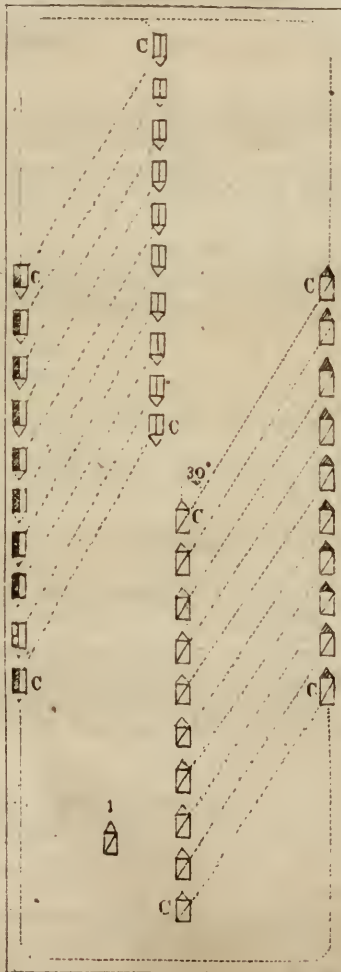 C
C
C
C
30°
C
C
C
1
C